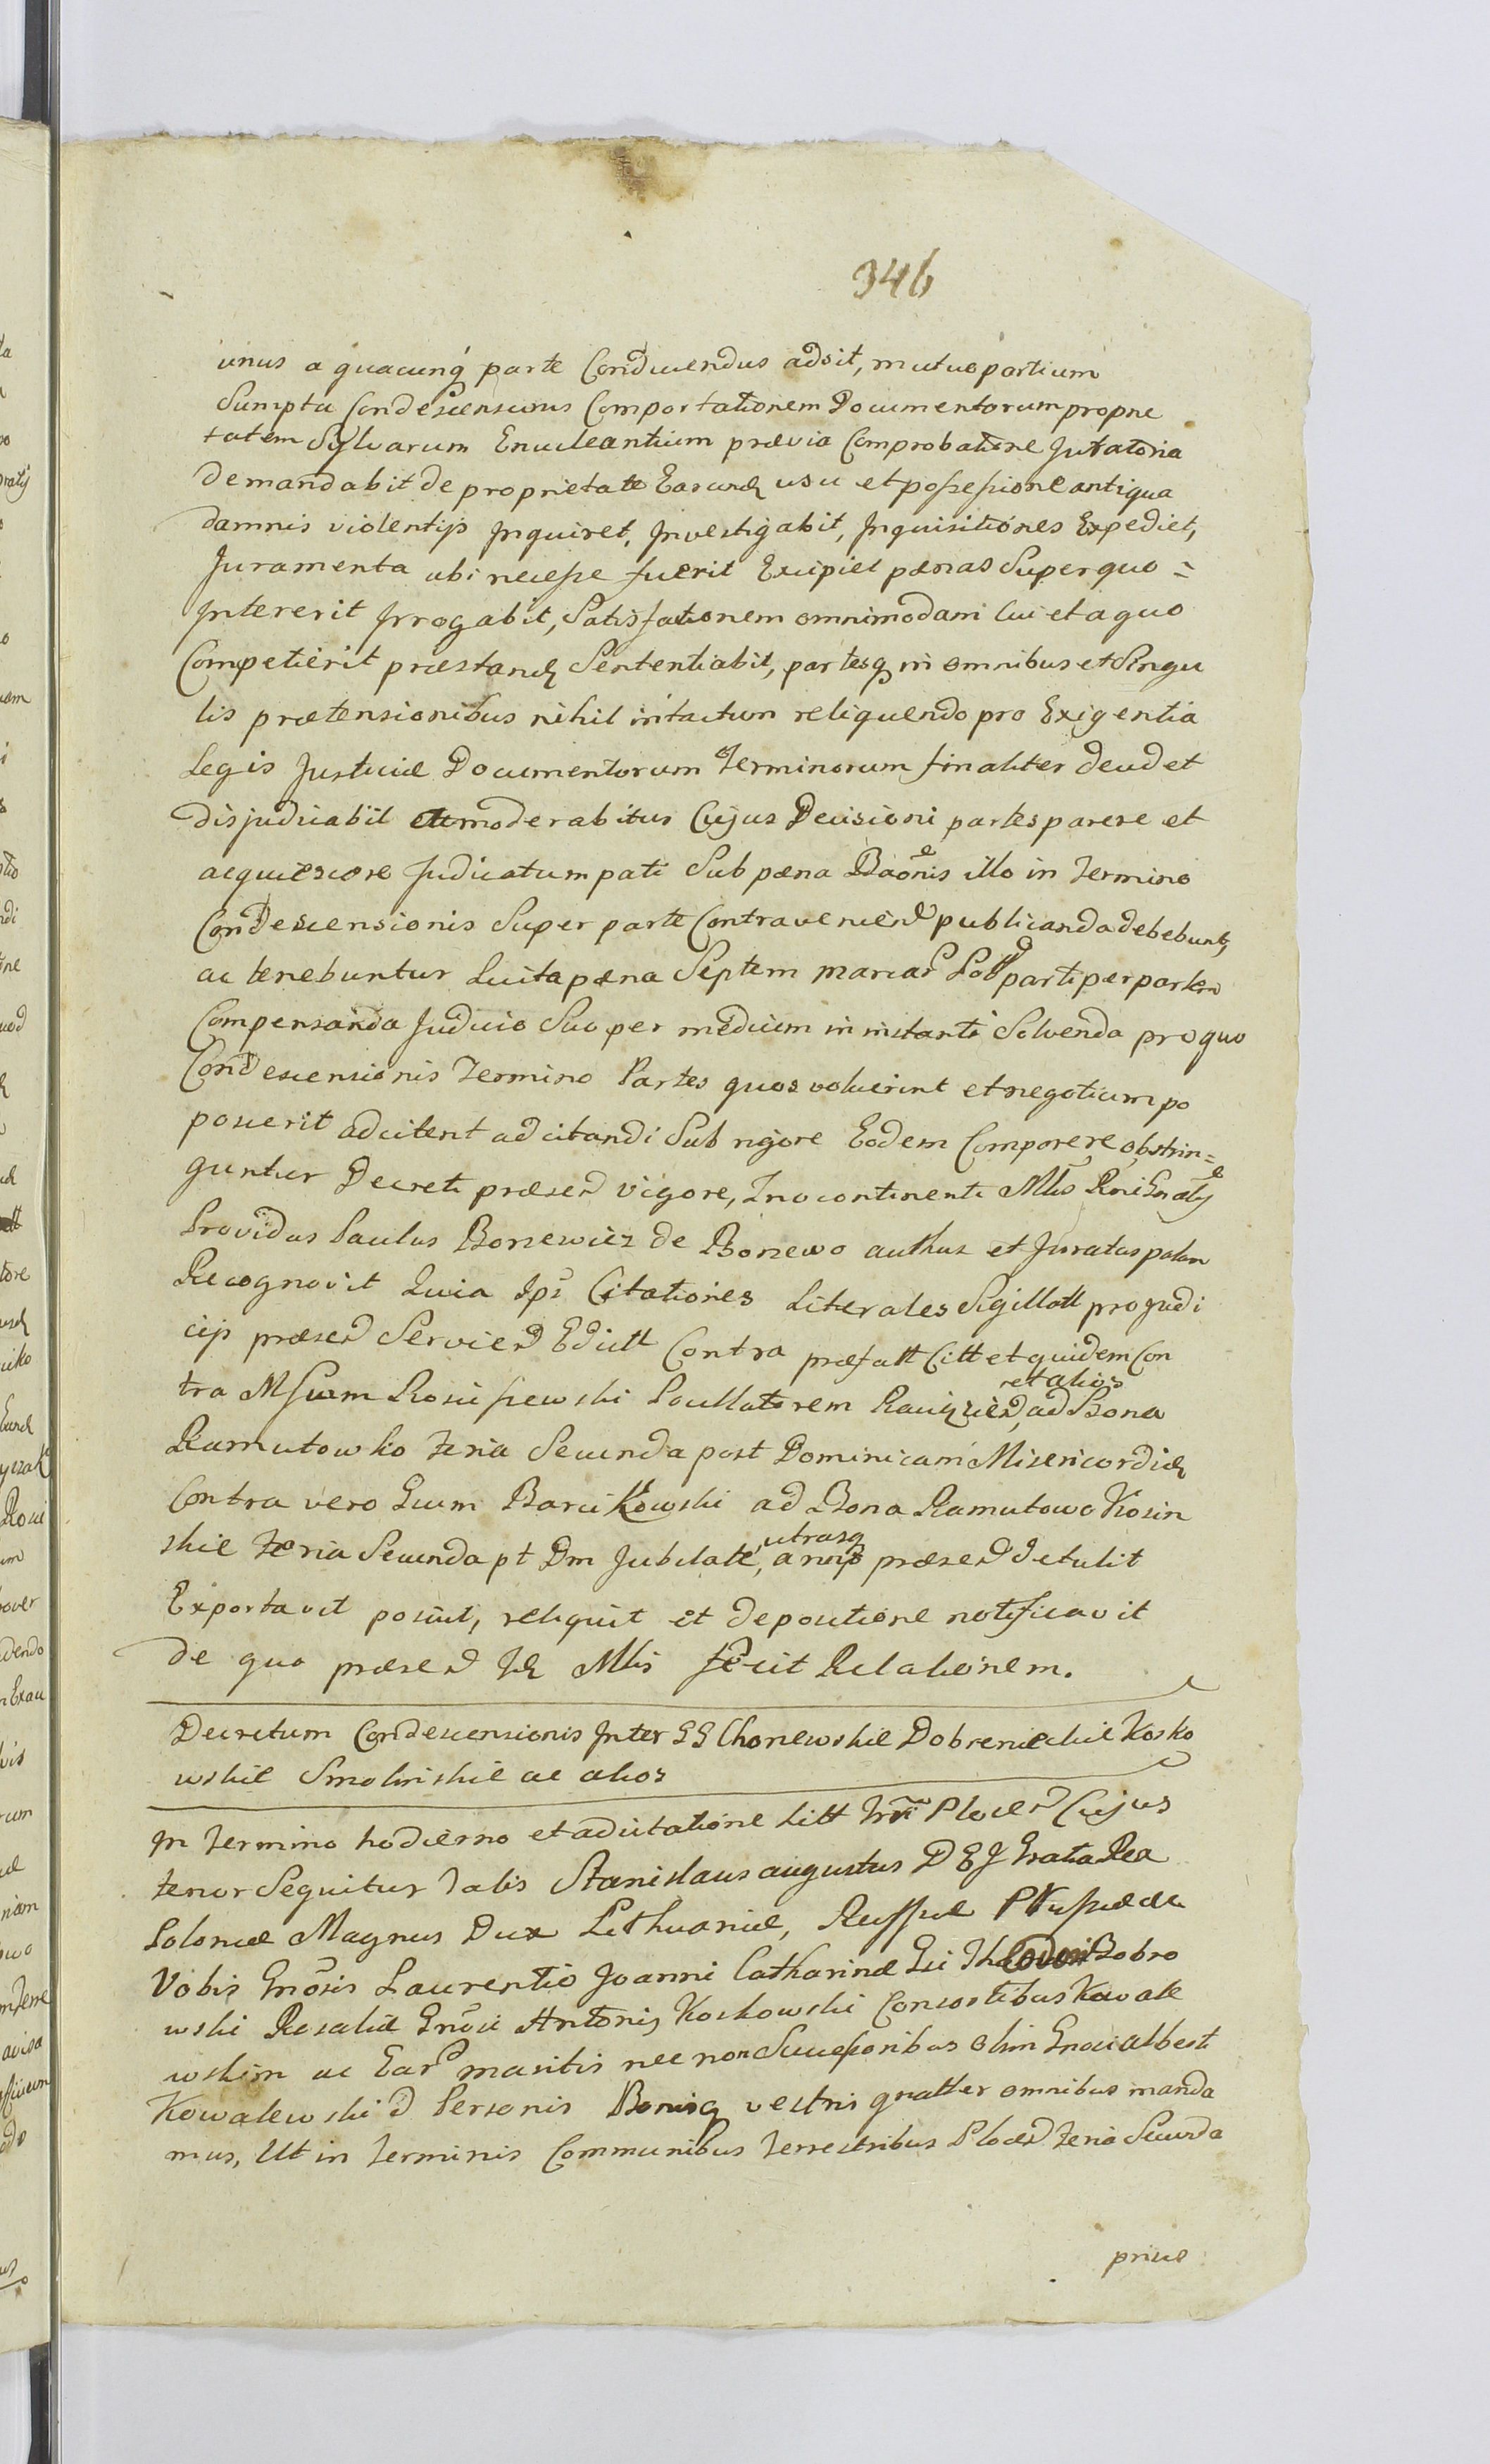 346
unus a quacunq parte Conducendus adsit, mutuo partium
Sumptu Condescensurus Comportationem Documentorum proprie
tatem Sylvarum Enucleantium prævia Comprobatione Juratoria
demandabit de proprietate Earund usu et possessione antiqua
damnis violentijs Jnquiret, Jnvestigabit, Jnquisitiones Expediet,
Juramenta ubi necesse fuerit Excipiet pænas Super quo=
Jntererit Jrrogabit, Satisfationem omnimodam cui et a quo
Competierit præstand Sententiabit, partesq in omnibus et Singu
lis prætensionibus nihil intactum reliquendo pro Exigentia
Legis Justiciæ Documentorum Terminorum finaliter decidet
disjudicabit et moderabitur Cujus Decisioni partes parere et
acquiescere Judicatum pati Sub pæna Baonis illo in Termino
Condescensionis Super parte Contravenien publicanda debebunt,
ac tenebuntur Luita pæna Septem marcar Poll parti per partem
Compensanda Judicio Suo per medium in instanti Solvenda pro quo
Condescensionis Termino Partes quos voluerint et negotium po
poscerit adcitent adcitandi Sub rigore Eodem Comparere obstrin=
guntur Decreti præsen vigore, Jn continenti Mtis
Providus Paulus Bonewicz de Bonewo authus et Juratus palam
Recognovit Quia Jps Citationes Literales Sigillatt pro Judi
cijs præsen Servien Edictt Contra præfatt Citt et quidem Con
tra Msicum Rosciszewski Pocillatorem Raciązien, et alios ad Bona
Ramutowko Feria Secunda post Dominicam Misericordiæ
Contra vero Gsum Barcikowski ad Bona Ramutowo Kosin
skie Feria Secunda pt Dm Jubilate, utrasq præsen detulit
Exportavit posuit, reliquit et depositione notificavit
de quo præsen Mtis fecit Relationem.
Decretum Condescensionis Jnter GG Chonewskie Dobrenieckie Kosko
wskie Smolinskie ac alios
Jn Termino hodierno et adcitatione Litt Ploccen Cujus
tenor Sequitur Talis Stanislaus augustus D G J Gratia Rex
Poloniæ Magnus Dux Lithuaniæ, Russiæ Prussiæ
Vobis Gnosis Laurentio Joanni Catharinæ Gsi Bobro
wski Rosaliæ Gnosi Antonij Koskowski Consortibus Kowale
wskim ac Ear maritis nec non Successoribus Olim Gnosi alberti
Kowalewski d Personis Bonisq vestris gnalter omnibus manda
mus, Ut in Terminis Communibus Terrestribus Plocen Feria Secunda
priue